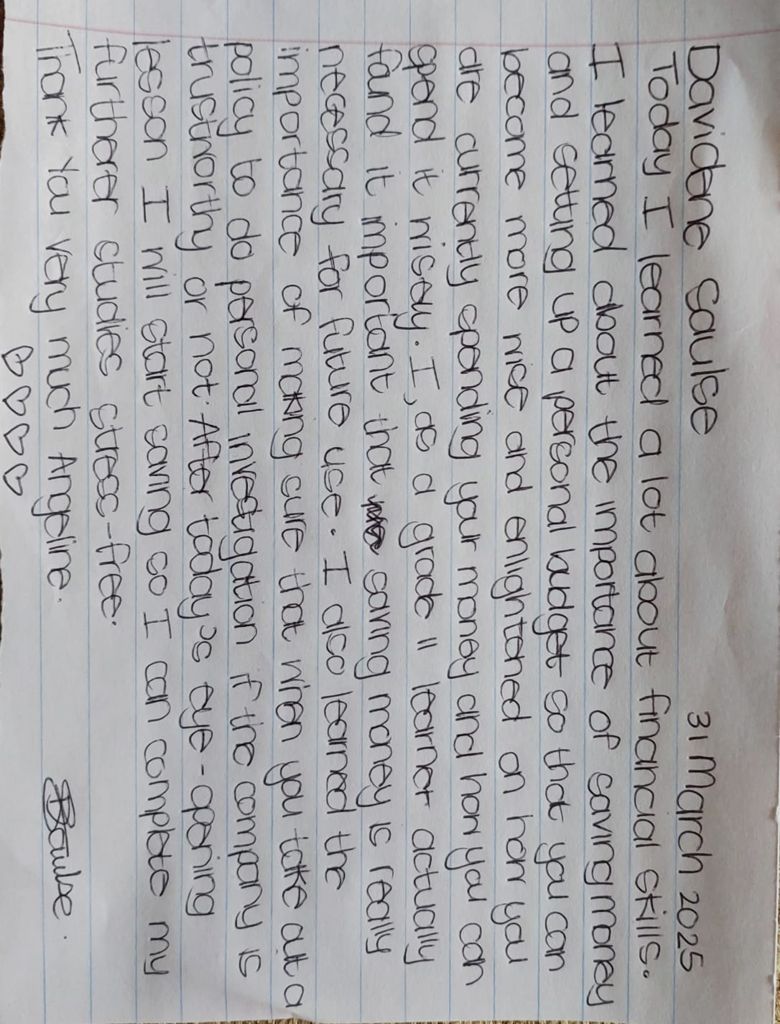 Davidene Saulse 31 March 2025
Today I learned a lot about financial skills.
I learned about the importance of saving money
and setting up a personal budget so that you can
become more wise and enlightened on how you
are currently spending your money and how you can
spend it wisely. I, as a grade 11 learner actually
fand it important that saving money is really
necessary for future use. I also learned the
importance of making sure that when you take out a
policy to do personal investigation if the company is
trustworthy or not. After today's eye-opening
lesson I will start saving so I can complete my
furtherer studies stress-free.
Thank You very much Angeline. Saulse.